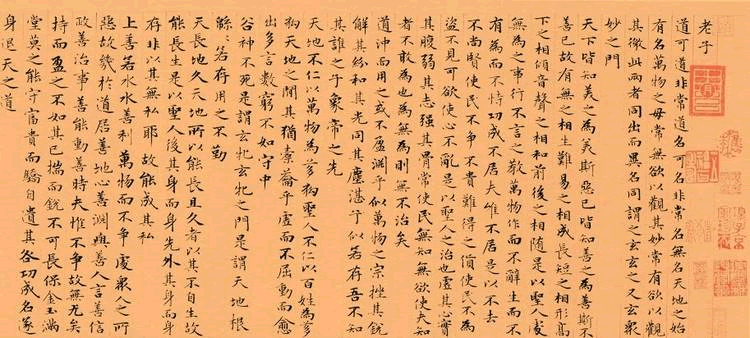 老子
道可道非常道名可名非常名無名天地之始
有名萬物之母常無欲以觀其妙常有欲以觀
其徼此兩者同出而異名同謂之玄玄之又玄衆
妙之門
天下皆知美之為美斯惡已皆知善之為善斯不
善已故有無之相生難易之相成長短之相形高
下之相傾音聲之相和前後之相隨是以聖人處
無為之事行不言之教萬物作而不辭生而不
有為而不恃功成不居夫惟不居是以不去
不尚賢使民不爭不貴難得之貨使民不為
盜不見可欲使心不亂是以聖人之治也虛其心實
其腹弱其志強其骨常使民無知無欲使夫知
者不敢為也為無為則無不治矣
道沖而用之或不盈淵乎似萬物之宗挫其銳
解其紛和其光同其塵湛乎似若存吾不知
其誰之子象帝之先
天地不仁以萬物為芻狗聖人不仁以百姓為芻
狗天地之間其猶橐籥乎虛而不屈動而愈
出多言數窮不如守中
谷神不死是謂玄牝玄牝之門是謂天地根
緜緜若存用之不勤
天長地久天地所以能長且久者以其不自生故
能長生是以聖人後其身而身先外其身而身
存非以其無私耶故能成其私
上善若水水善利萬物而不爭處衆人之所
惡故幾於道居善地心善淵與善人言善信
政善治事善能動善時夫惟不爭故無尤矣
持而盈之不如其已揣而銳不可長保金玉滿
堂莫之能守富貴而驕自遺其咎功成名遂
身退天之道